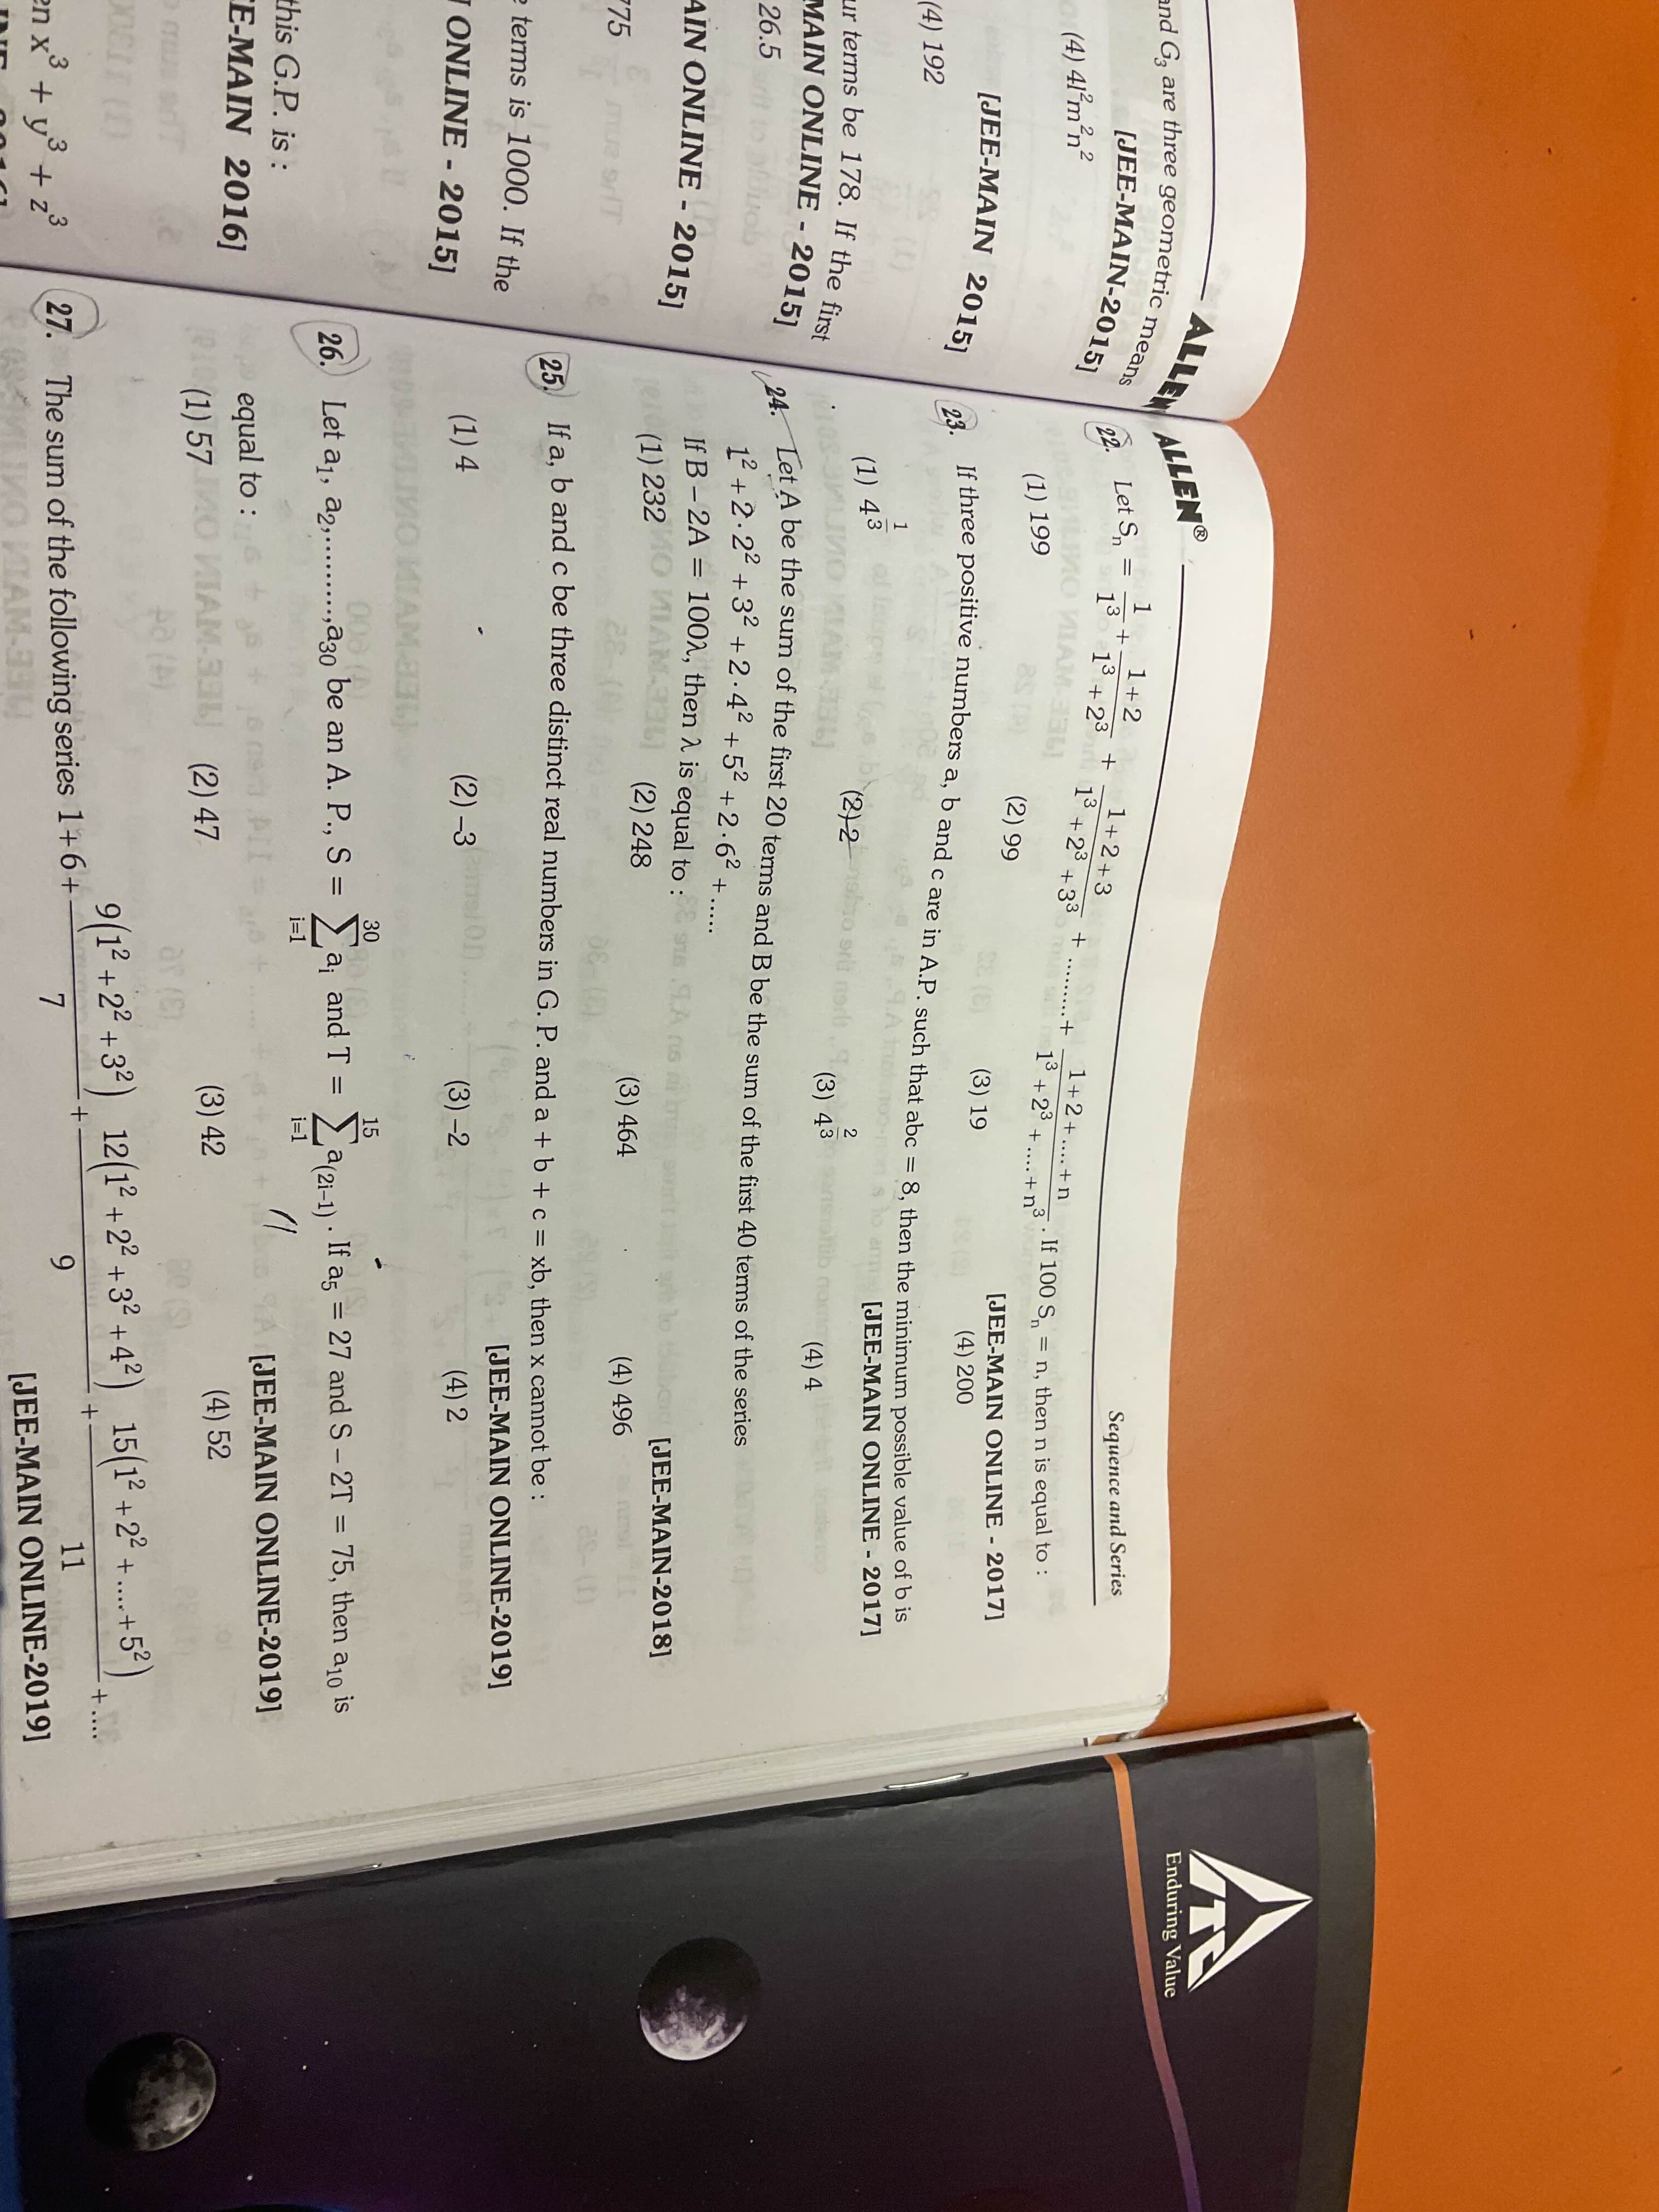 and G₃ are three geometric means
[JEE-MAIN-2015]
(4) 4l²m²n²
[JEE-MAIN 2015]
(4) 192
ur terms be 178. If the first
MAIN ONLINE - 2015]
26.5
AIN ONLINE - 2015]
775
terms is 1000. If the
ONLINE - 2015]
this G.P. is :
E-MAIN 2016]
en x³ + y³ + z³
ALLEN
ALLEN®
Sequence and Series
22. Let Sₙ = 1/1³ + (1+2)/(1³+2³) + (1+2+3)/(1³+2³+3³) + .......... + (1+2+....+n)/(1³+2³+....+n³). If 100 Sₙ = n, then n is equal to :
[JEE-MAIN ONLINE - 2017]
(1) 199 (2) 99 (3) 19 (4) 200
23. If three positive numbers a, b and c are in A.P. such that abc = 8, then the minimum possible value of b is
[JEE-MAIN ONLINE - 2017]
(1) 4^(1/3) (2) 2 (3) 4^(2/3) (4) 4
24. Let A be the sum of the first 20 terms and B be the sum of the first 40 terms of the series
1² + 2·2² + 3² + 2·4² + 5² + 2·6² + ......
If B – 2A = 100λ, then λ is equal to :
[JEE-MAIN-2018]
(1) 232 (2) 248 (3) 464 (4) 496
25. If a, b and c be three distinct real numbers in G. P. and a + b + c = xb, then x cannot be :
[JEE-MAIN ONLINE-2019]
(1) 4 (2) –3 (3) –2 (4) 2
26. Let a₁, a₂,..........,a₃₀ be an A. P., S = ∑_(i=1)^30 aᵢ and T = ∑_(i=1)^15 a₍₂ᵢ₋₁₎. If a₅ = 27 and S – 2T = 75, then a₁₀ is
equal to :
[JEE-MAIN ONLINE-2019]
(1) 57 (2) 47 (3) 42 (4) 52
27. The sum of the following series 1+6+ 9(1²+2²+3²)/7 + 12(1²+2²+3²+4²)/9 + 15(1²+2²+....+5²)/11 + ....
[JEE-MAIN ONLINE-2019]
ITC
Enduring Value